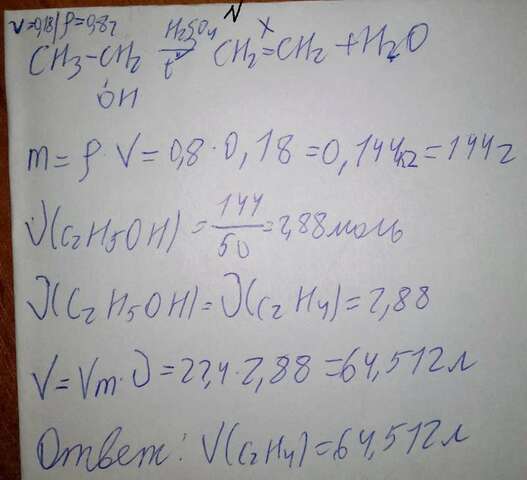 N
V=0,18л ρ=0,8г
CH3-CH2 H2SO4 t° CH2=CH2 + H2O
X
OH
m=ρ·V=0,8·0,18=0,144кг=144г
ν(C2H5OH)=144/50=2,88моль
ν(C2H5OH)=ν(C2H4)=2,88
V=Vm·ν=22,4·2,88=64,512л
Ответ: V(C2H4)=64,512л